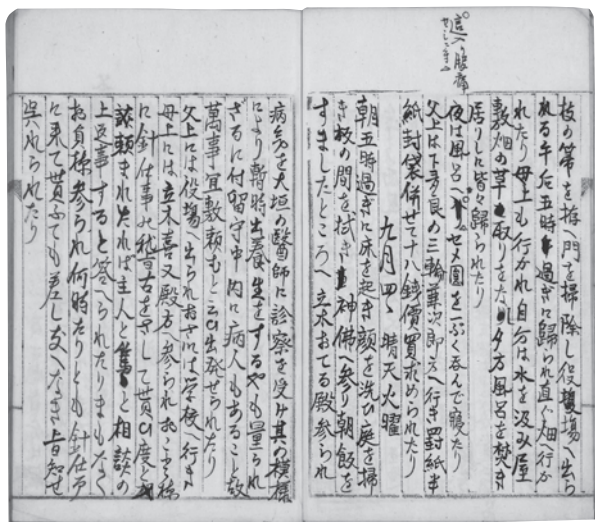 枝の箒を拵へ門を掃除し役場へ出ら
れる午后五時過ぎに帰られ直ぐ畑へ行か
れたり母上も行かれ自分は水を汲み屋
敷畑の草取りをなし夕方風呂を焚き
居りしに皆々帰られたり
夜は風呂へ セメ圓をぶく呑んで寝たり
父上は下多良の三輪華次郎方へ行き罫紙半
紙封袋併せて十八銭價買求められたり
九月四日 晴天火曜
朝五時過ぎに床を起き顔を洗ひ庭を掃
き板の間を拭き神佛へ参り朝飯を
すましたところへ立木おてる殿参られ
病気を大垣の醫師に診察を受け其の模様
により暫時出養生をするやも量られ
ざるに付留守中内に病人もあること故
萬事宜敷頼むと云ひ出発せられたり
父上には役場へ出られおさいは学校へ行き
母上には立木喜又殿方へ参られ
に針仕事の稽古をさして貰ひ度と
談頼まれたれば主人と篤と相談の
上返事すると答へられたりまもなく
お貞様参られ何時たりとも針仕事
に来て貰ふても差し支へなき旨知せ
呉れられたり